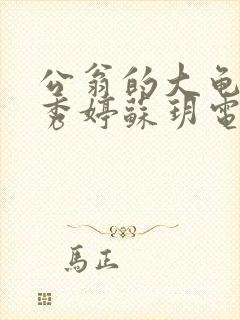 公翁的大龟
秀婷蘇玥電
馬正